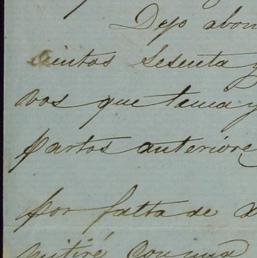 Dejo abon
cientos sesenta y
vos que tenia y
partos anteriore
por falta de
mitiré con una